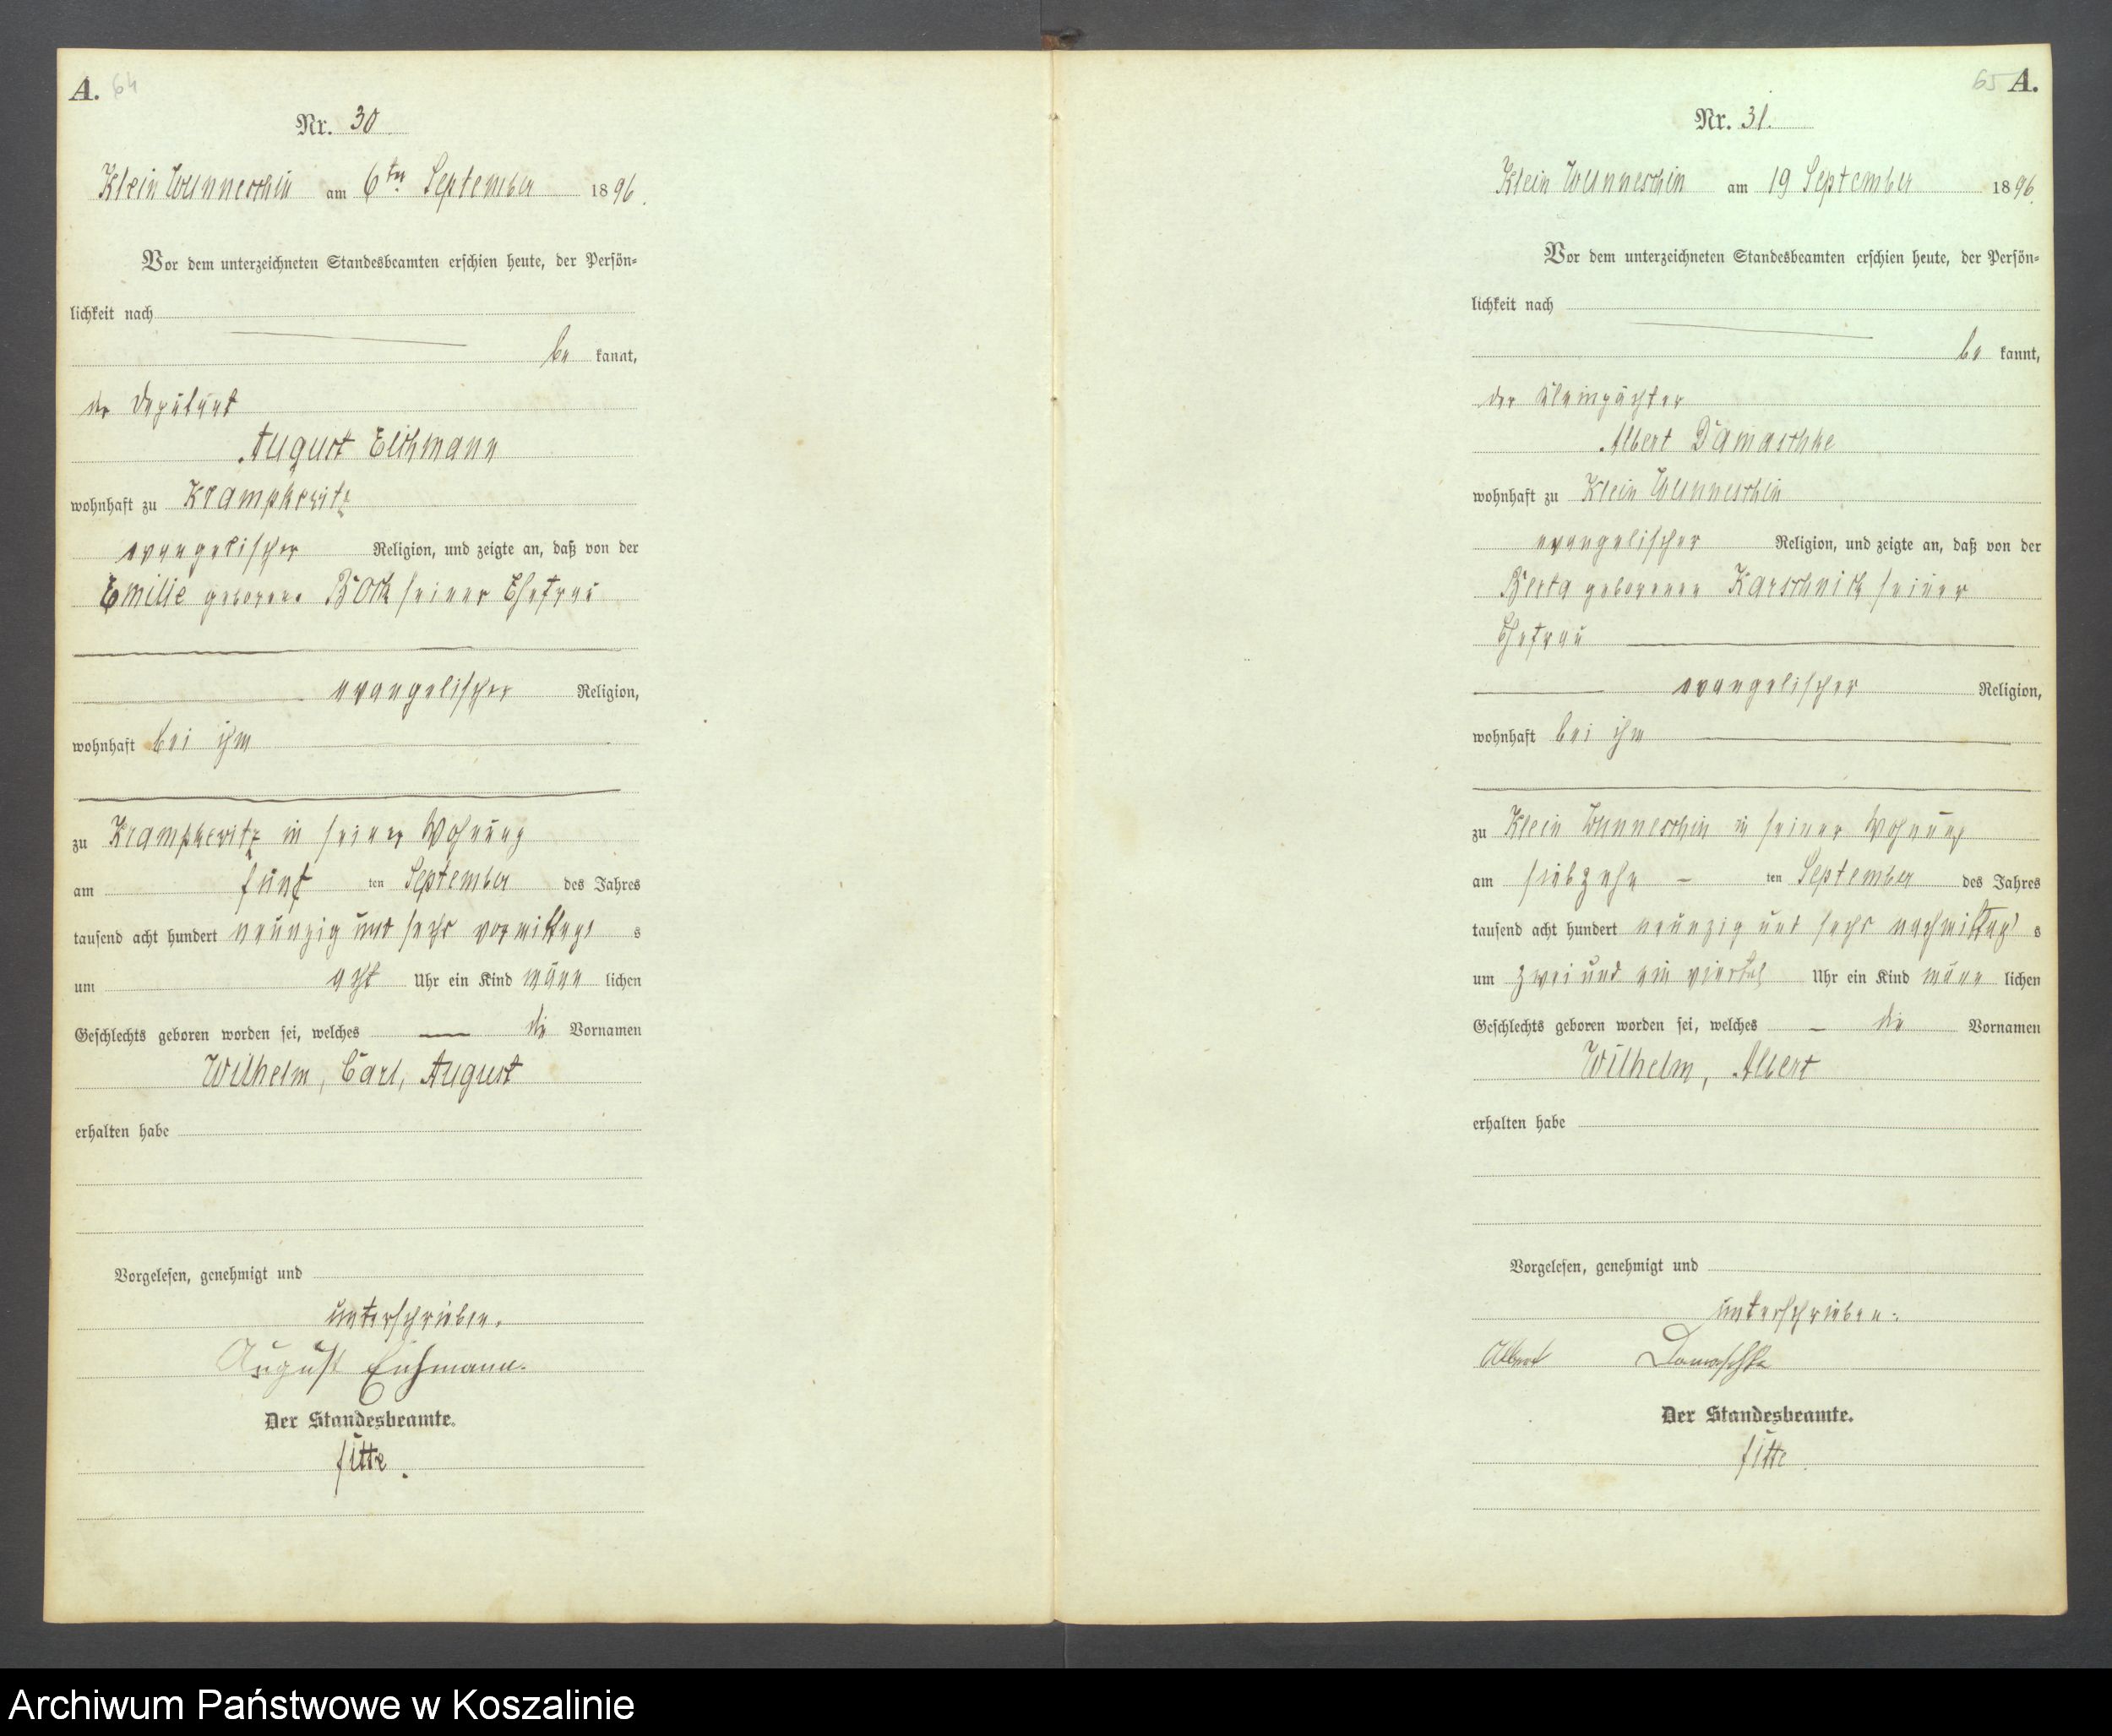 A. 64
Nr. 30.
Klein Wunneschin am 6ten September 1896.
Vor dem unterzeichneten Standesbeamten erschien heute, der Persön-
lichkeit nach
be kannt,
der Deputant
August
wohnhaft zu Krampkewitz
evangelischer Religion, und zeigte an, daß von der
Emilie geborene Bock seiner Ehefrau
evangelischer Religion,
wohnhaft bei ihm
zu Krampkewitz in seiner Wohnung
am fünf ten September des Jahres
tausend acht hundert neunzig und sechs vormittags s
um acht Uhr ein Kind männ lichen
Geschlechts geboren worden sei, welches die Vornamen
Wilhelm, Carl, August
erhalten habe
Vorgelesen, genehmigt und
unterschrieben.
August
Der Standesbeamte.
65 A.
Nr. 31.
Klein Wunneschin am 19 September 1896.
Vor dem unterzeichneten Standesbeamten erschien heute, der Persön-
lichkeit nach
be kannt,
der Kleinpächter
Albert Damaschke
wohnhaft zu Klein Wunneschin
evangelischer Religion, und zeigte an, daß von der
Berta geborenen Karschnick seiner
Ehefrau
evangelischer Religion,
wohnhaft bei ihm
zu Klein Wunneschin in seiner Wohnung
am siebzehn – ten September des Jahres
tausend acht hundert neunzig und sechs nachmittag s
um zwei und ein viertel Uhr ein Kind männ lichen
Geschlechts geboren worden sei, welches – die Vornamen
Wilhelm, Albert
erhalten habe
Vorgelesen, genehmigt und
unterschrieben.
Albert Damaschke
Der Standesbeamte.
Archiwum Państwowe w Koszalinie